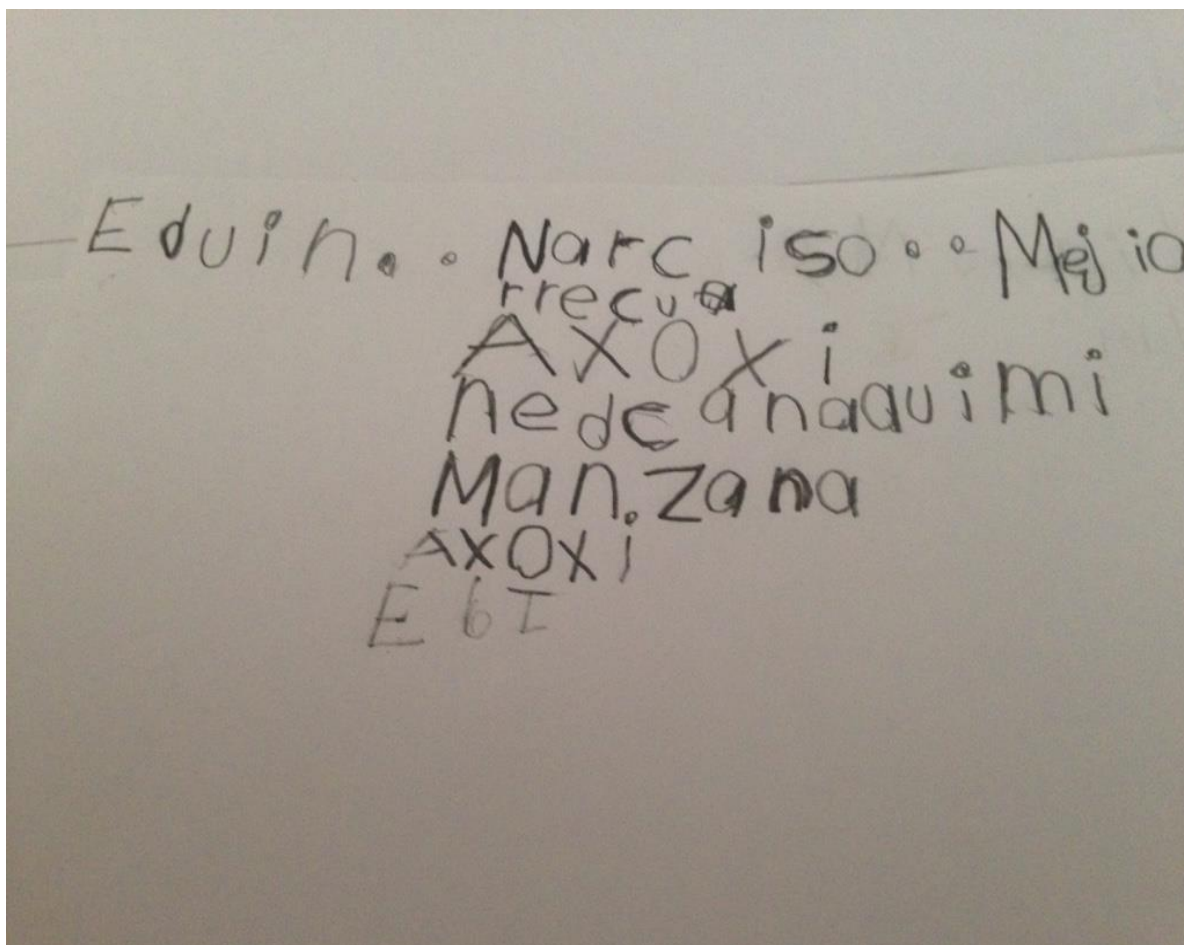 Eduin.. Narciso.. Mejia
rrecua
AXOXi
nedcanaquimi
Manzana
AXOXi
E6I